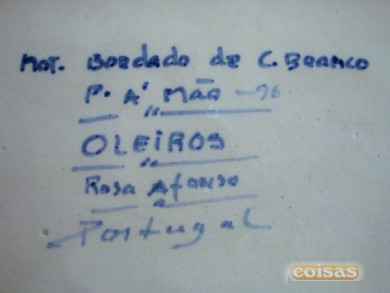 Mot. Bordado de C. Branco
P. A' Mão - 96
OLEIROS
Rosa Afonso
Portugal
coisas